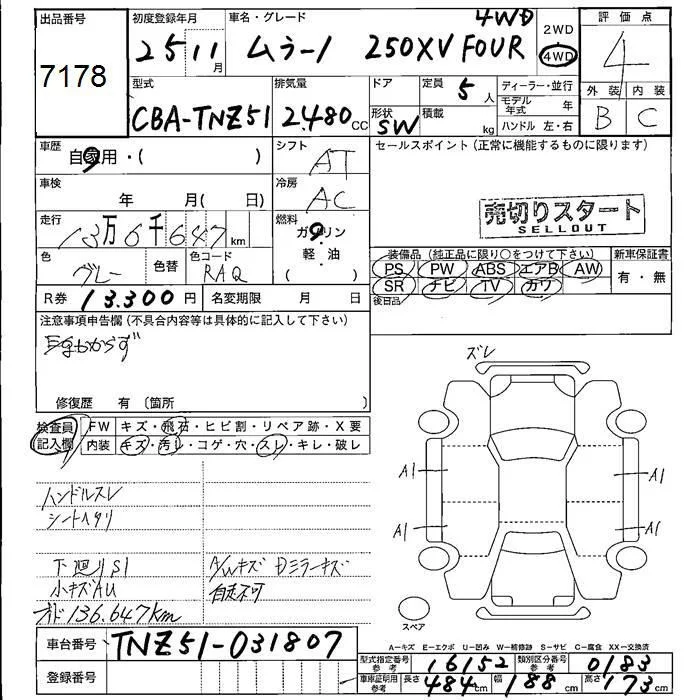 出品番号 初度登録年月 車名・グレード 評価点
7178 25 11月 ムラーノ 250XV FOUR 4WD 2WD 4WD 4
型式 排気量 ドア 定員 5人 ディーラー・並行 外装 内装
CBA-TNZ51 2.480cc 形状 SW 積載 kg モデル年式 年 B C
ハンドル 左・右
車歴 自家用・( ) シフト AT セールスポイント(正常に機能するものに限ります)
車検 年 月( 日) 冷房 AC
売切りスタート
SELLOUT
走行 13万6千647km 燃料 ガソリン・軽・油
( )
色 グレー 色替 色コード RAQ
装備品(純正品に限り○をつけて下さい) 新車保証書
PS PW ABS エアB AW 有・無
SR ナビ TV カワ
後日品
R券 13.300円 名変期限 月 日
注意事項申告欄(不具合内容等は具体的に記入して下さい)
修復歴 有(箇所 )
ズレ
検査員記入欄 FW キズ・飛石・ヒビ割・リペア跡・X要
内装 キズ・汚レ・コゲ・穴・スレ・キレ・破レ
ハンドルスレ
シートヘタリ
下廻りS1 A/Wキズ Dミラーキズ
小キズAU 自走不可
オド136.647km
A1 A1
A1 A1
スペア
A-キズ E-エクボ U-凹み W-補修跡 S-サビ C-腐食 XX-交換済
車台番号 TNZ51-031807
登録番号
型式指定番号参考 16152 類別区分番号参考 0183
車庫証明用参考 長さ 484cm 幅 188cm 高さ 173cm